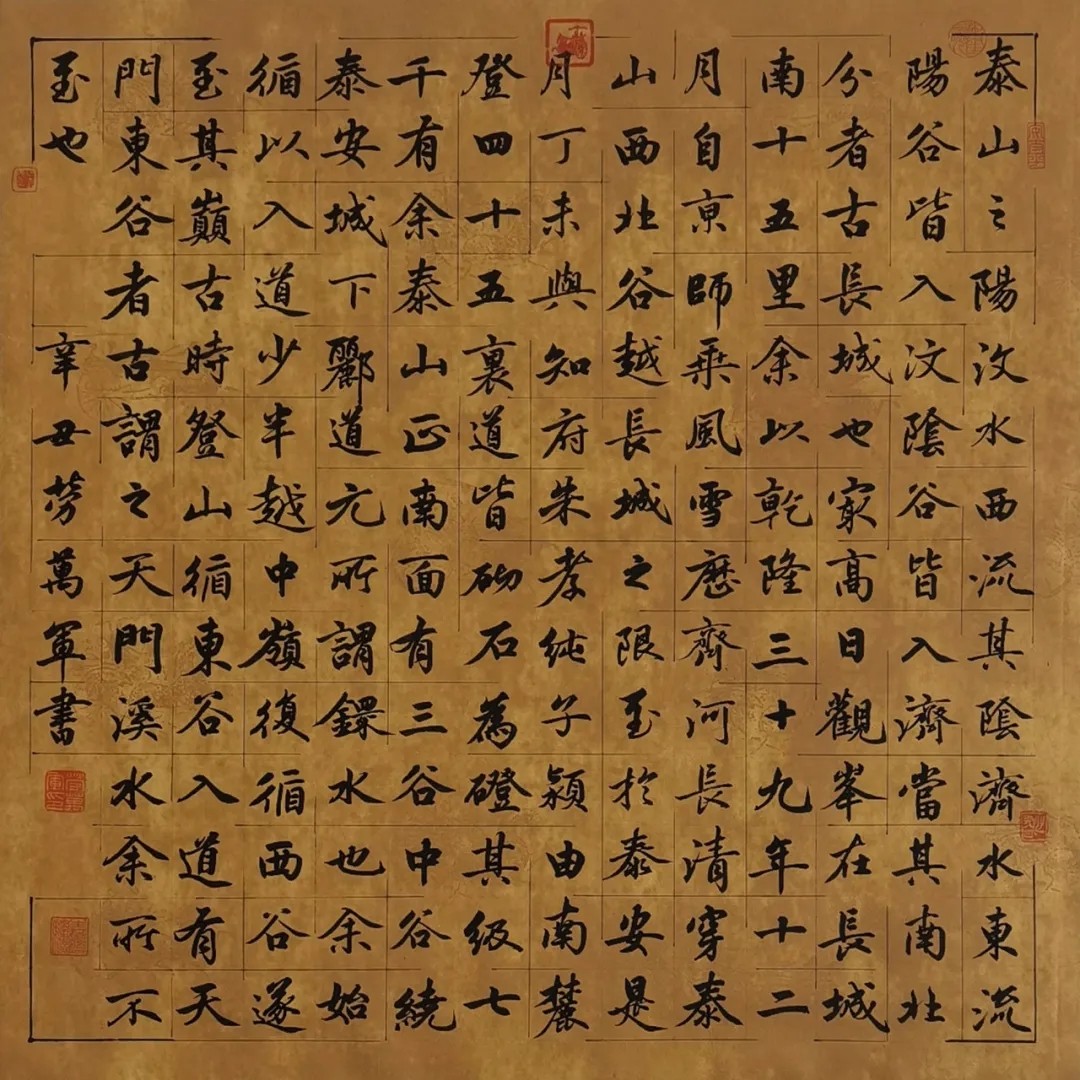 泰山之陽汶水西流其陰濟水東流
陽谷皆入汶陰谷皆入濟當其南北
分者古長城也㝡高日觀峯在長城
南十五里余以乾隆三十九年十二
月自京師乘風雪歷齊河長清穿泰
山西北谷越長城之限至於泰安是
月丁未與知府朱孝純子潁由南麓
登四十五裏道皆砌石為磴其級七
千有余泰山正南面有三谷中谷繞
泰安城下酈道元所謂鐶水也余始
循以入道少半越中嶺復循西谷遂
至其巔古時登山循東谷入道有天
門東谷者古謂之天門溪水余所不
至也 辛丑勞萬軍書